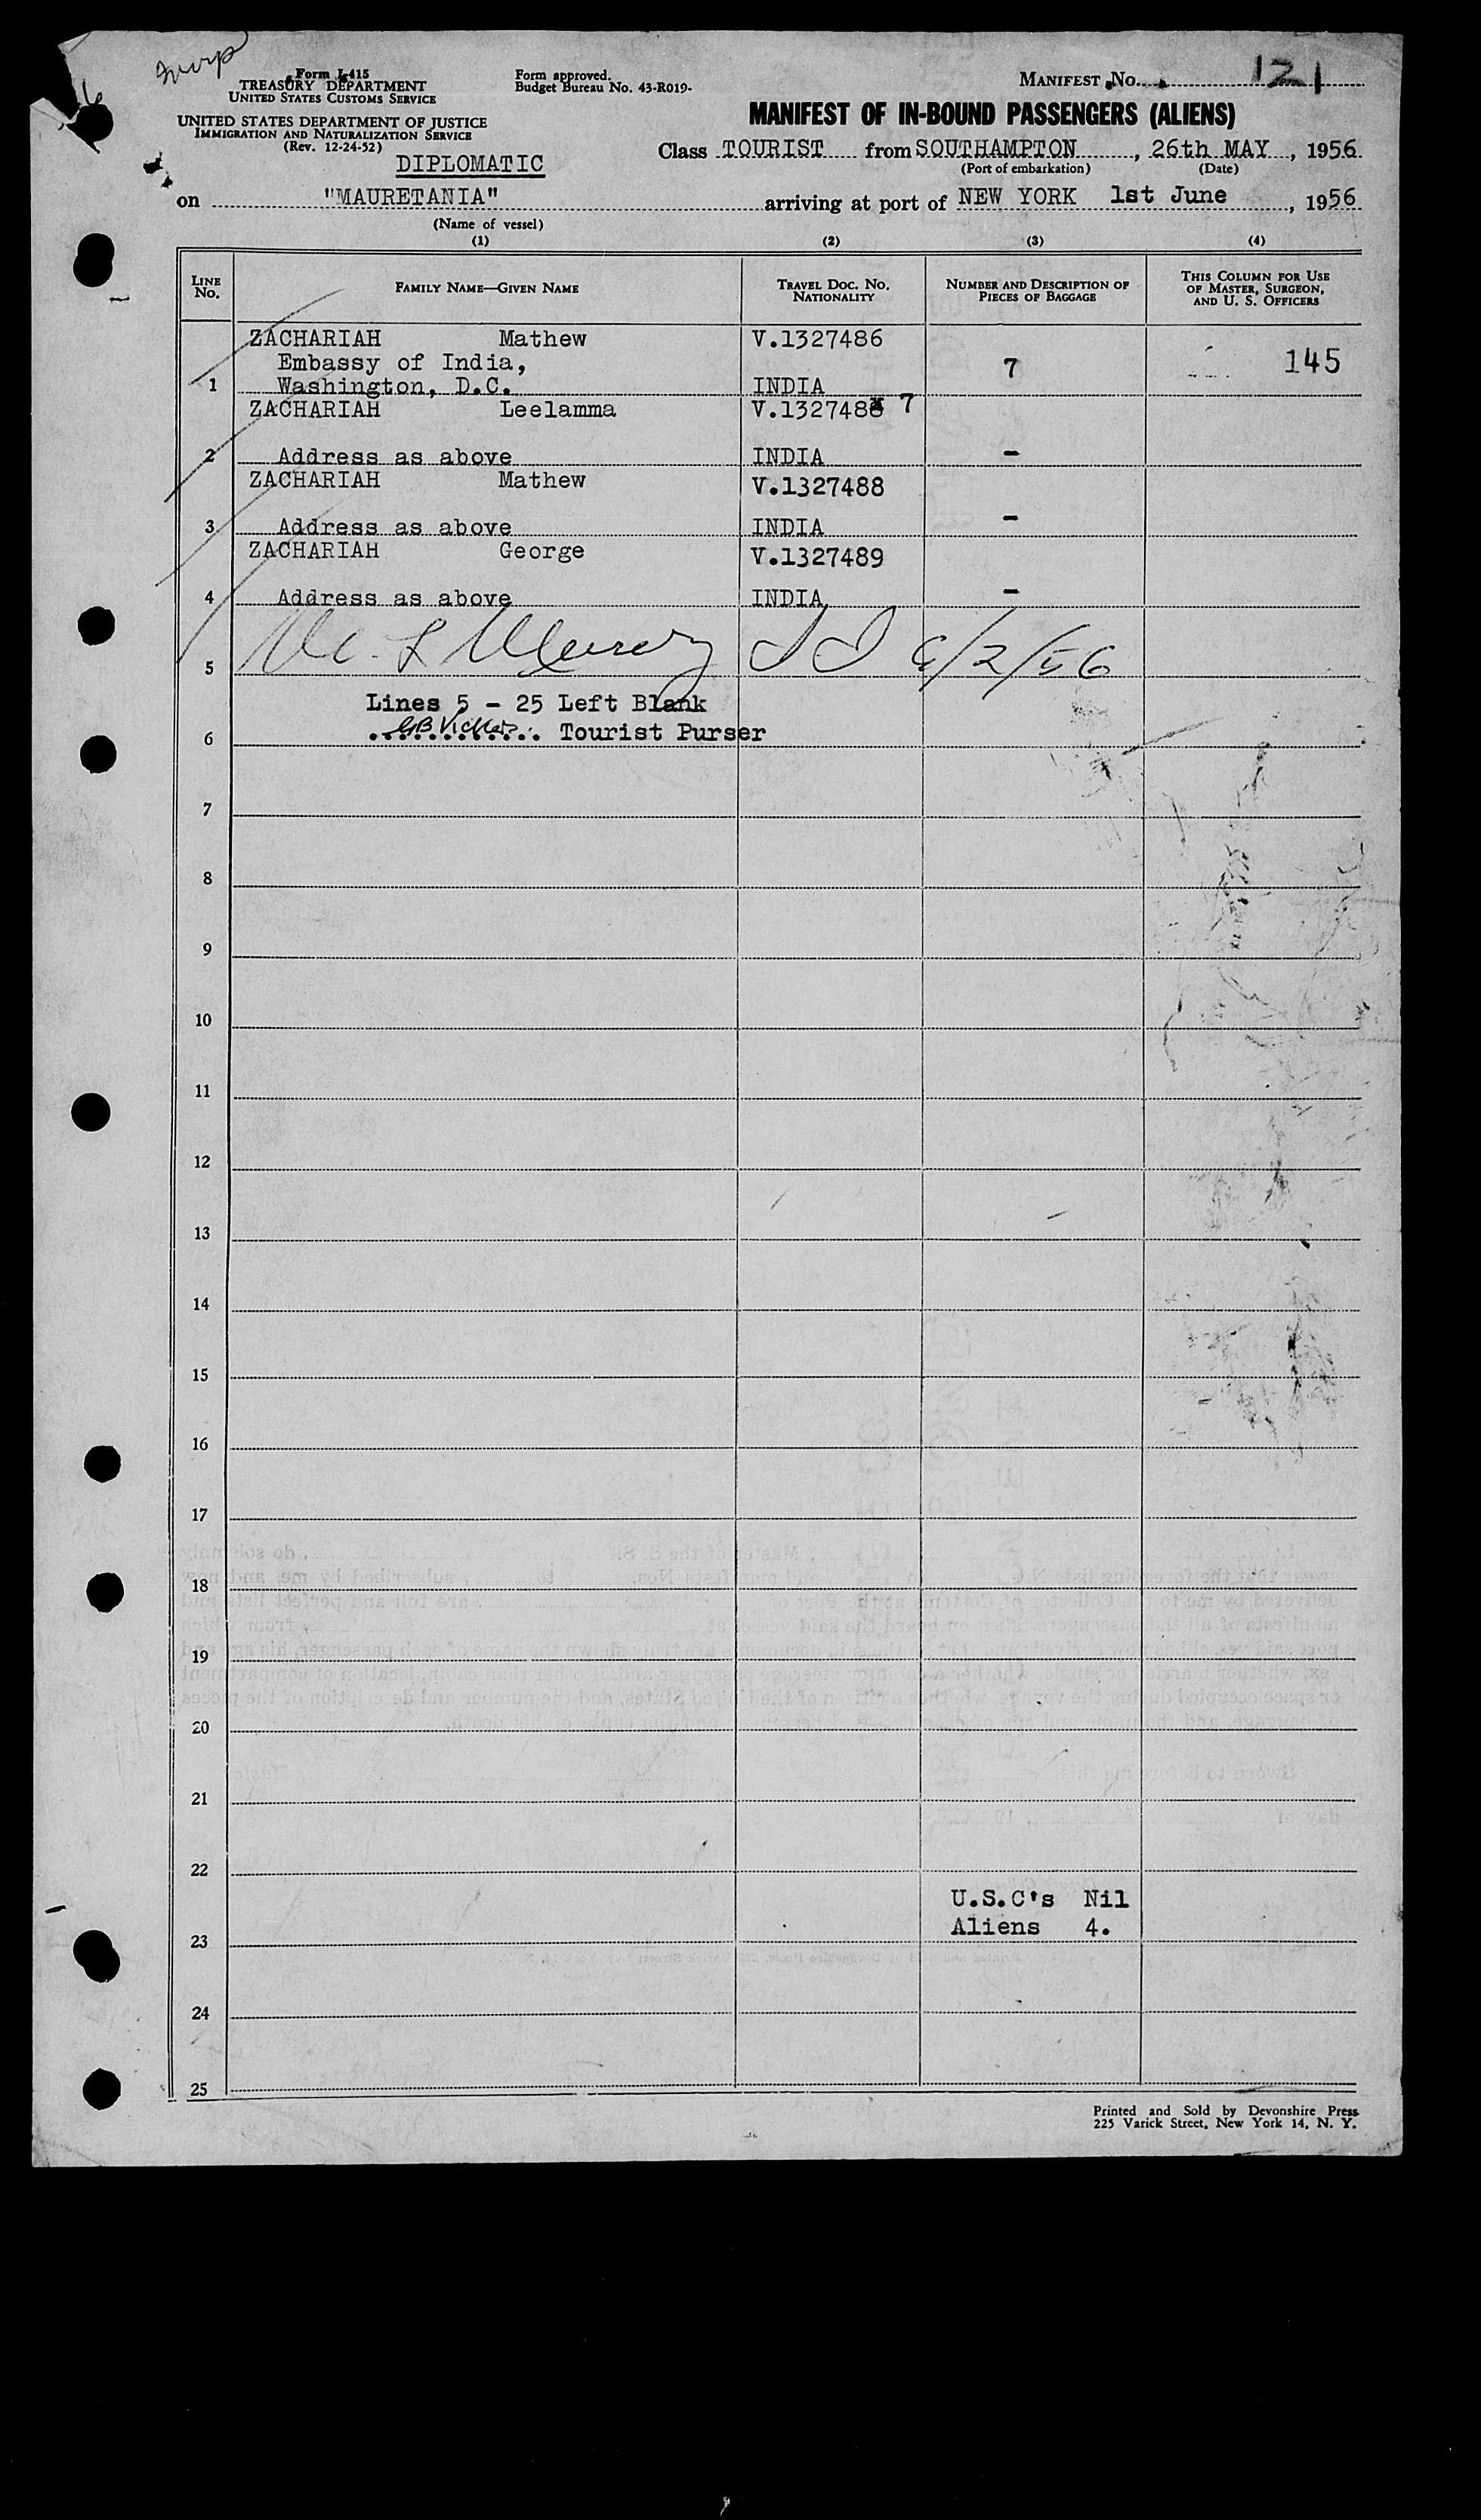 Form I-415
TREASURY DEPARTMENT
UNITED STATES CUSTOMS SERVICE
UNITED STATES DEPARTMENT OF JUSTICE
IMMIGRATION AND NATURALIZATION SERVICE
(Rev. 12-24-52)
Form approved.
Budget Bureau No. 43-R019-
MANIFEST No. 121
MANIFEST OF IN-BOUND PASSENGERS (ALIENS)
Class TOURIST from SOUTHAMPTON, 26th MAY, 1956
(Port of embarkation) (Date)
DIPLOMATIC
on "MAURETANIA" arriving at port of NEW YORK 1st June, 1956
(Name of vessel)
(1) (2) (3) (4)
LINE No. FAMILY NAME—GIVEN NAME TRAVEL DOC. No. NATIONALITY NUMBER AND DESCRIPTION OF PIECES OF BAGGAGE THIS COLUMN FOR USE OF MASTER, SURGEON, AND U. S. OFFICERS
ZACHARIAH Mathew V.1327486
Embassy of India, 7 145
1 Washington, D.C. INDIA
ZACHARIAH Leelamma V.1327488 7
2 Address as above INDIA -
ZACHARIAH Mathew V.1327488
3 Address as above INDIA -
ZACHARIAH George V.1327489
4 Address as above INDIA -
5 6/2/56
Lines 5 - 25 Left Blank
6 Tourist Purser
7
8
9
10
11
12
13
14
15
16
17
18
19
20
21
22
U.S.C's Nil
23 Aliens 4.
24
25
Printed and Sold by Devonshire Press
225 Varick Street, New York 14, N. Y.